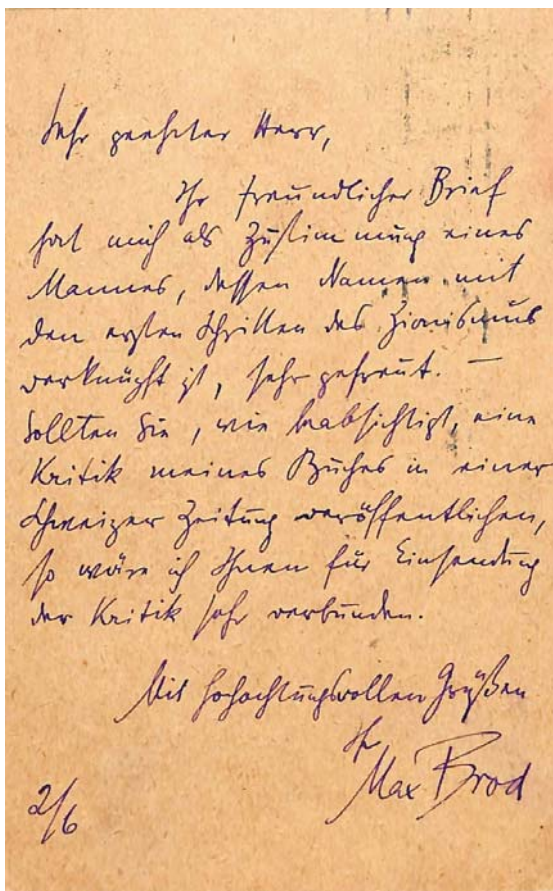 Sehr geehrter Herr,
Ihr freundlicher Brief
hat mich als Zustimmung eines
Mannes, dessen Namen mit
den ersten Schritten des Zionismus
verknüpft ist, sehr gefreut. —
Sollten Sie, wie beabsichtigt, eine
Kritik meines Buches in einer
Schweizer Zeitung veröffentlichen,
so wäre ich Ihnen für Einsendung
der Kritik sehr verbunden.
Mit hochachtungsvollen Grüßen
Ihr
Max Brod
2/6